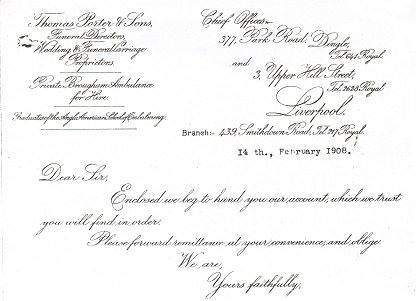 Thomas Porter & Sons,
Funeral Directors,
Wedding & Funeral Carriage
Proprietors.
Private Brougham Ambulance
for Hire.
Graduates of the Anglo American School of Embalming.
Chief Offices:-
377, Park Road, Dingle,
Tel. 641 Royal.
and
3, Upper Hill Street,
Tel. 2638 Royal
Liverpool.
Branch:- 439, Smithdown Road, Tel. 217 Royal.
14 th., February 1908.
Dear Sir,
Enclosed we beg to hand you our account, which we trust
you will find in order.
Please forward remittance at your convenience, and oblige
We are,
Yours faithfully,